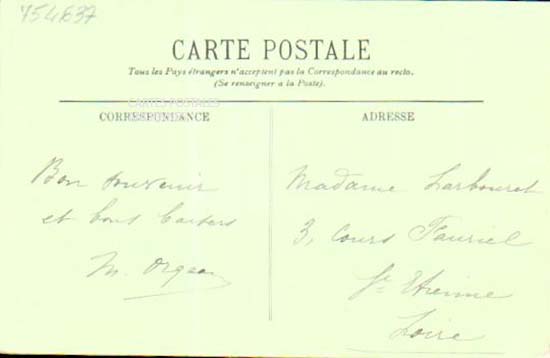 454637
CARTE POSTALE
Tous les Pays étrangers n'acceptent pas la Correspondance au recto.
(Se renseigner à la Poste).
CARTES POSTALES
CORRESPONDANCE
ADRESSE
Bon souvenir
et bons baisers
M.
Madame
3, Cours Fauriel
St Etienne
Loire